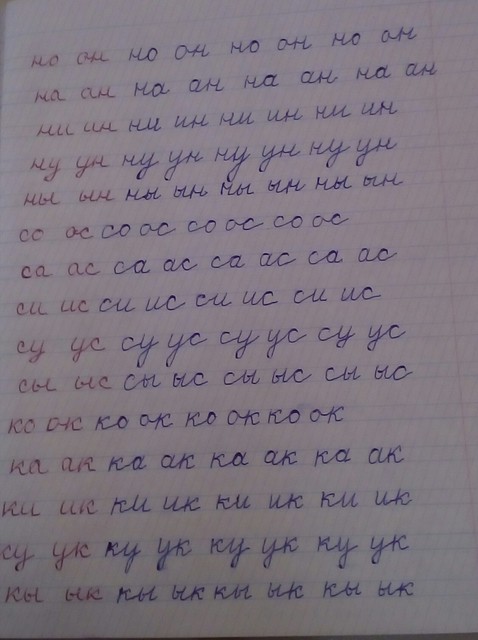 но он но он но он но он
на ан на ан на ан на ан
ни ин ни ин ни ин ни ин
ну ун ну ун ну ун ну ун
ны ын ны ын ны ын ны ын
со ос со ос со ос со ос
са ас са ас са ас са ас
си ис си ис си ис си ис
су ус су ус су ус су ус
сы ыс сы ыс сы ыс сы ыс
ко ок ко ок ко ок ко ок
ка ак ка ак ка ак ка ак
ки ик ки ик ки ик ки ик
ку ук ку ук ку ук ку ук
кы ык кы ык кы ык кы ык